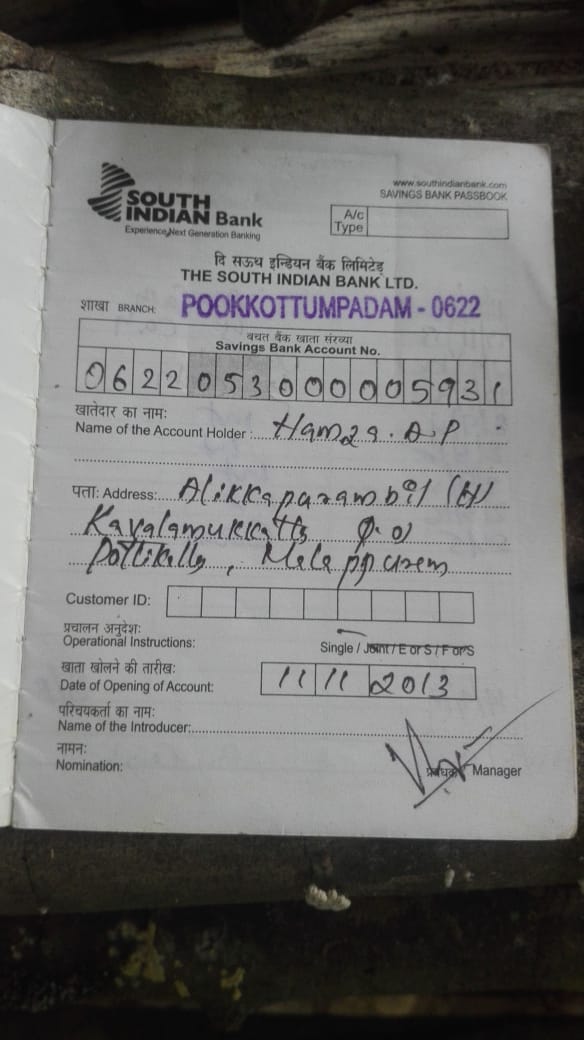 www.southindianbank.com
SAVINGS BANK PASSBOOK
SOUTH
INDIAN Bank
Experience Next Generation Banking
A/c
Type
दि सऊथ इन्डियन बैंक लिमिटेड
THE SOUTH INDIAN BANK LTD.
शाखा BRANCH: POOKKOTTUMPADAM - 0622
बचत बैंक खाता संख्या
Savings Bank Account No.
0622053000005931
खातेदार का नाम:
Name of the Account Holder : Hamza. A P
पता: Address: Alikkaparambil (H)
Kavalamukkatta P.O)
Pottikally, Malappuram
Customer ID:
प्रचालन अनुदेश:
Operational Instructions: Single / Joint / E or S / F or S
खाता खोलने की तारीख:
Date of Opening of Account: 11 11 2013
परिचयकर्ता का नाम:
Name of the Introducer:
नामन:
Nomination:
प्रबंधक / Manager